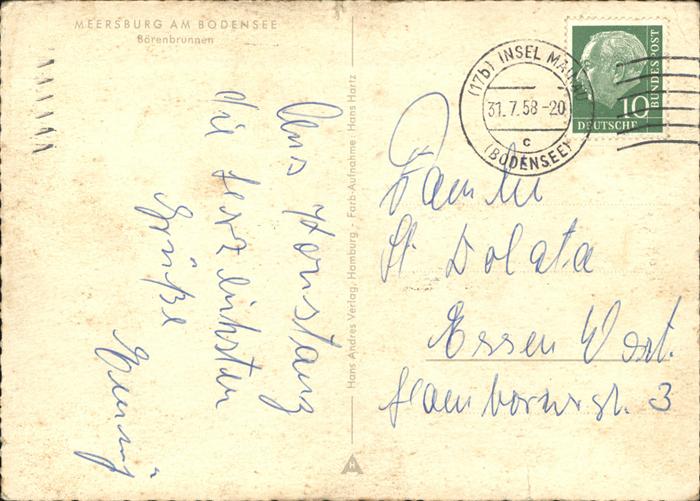 MEERSBURG AM BODENSEE
Bärenbrunnen
Aus Konstanz
die herzlichsten
Grüße
Hans Andres Verlag, Hamburg - Farb-Aufnahme: Hans Hartz
H
(17b) INSEL MAINAU
31.7.58-20
c
(BODENSEE)
10
DEUTSCHE
BUNDESPOST
Familie
St Dolata
Essen West.
3